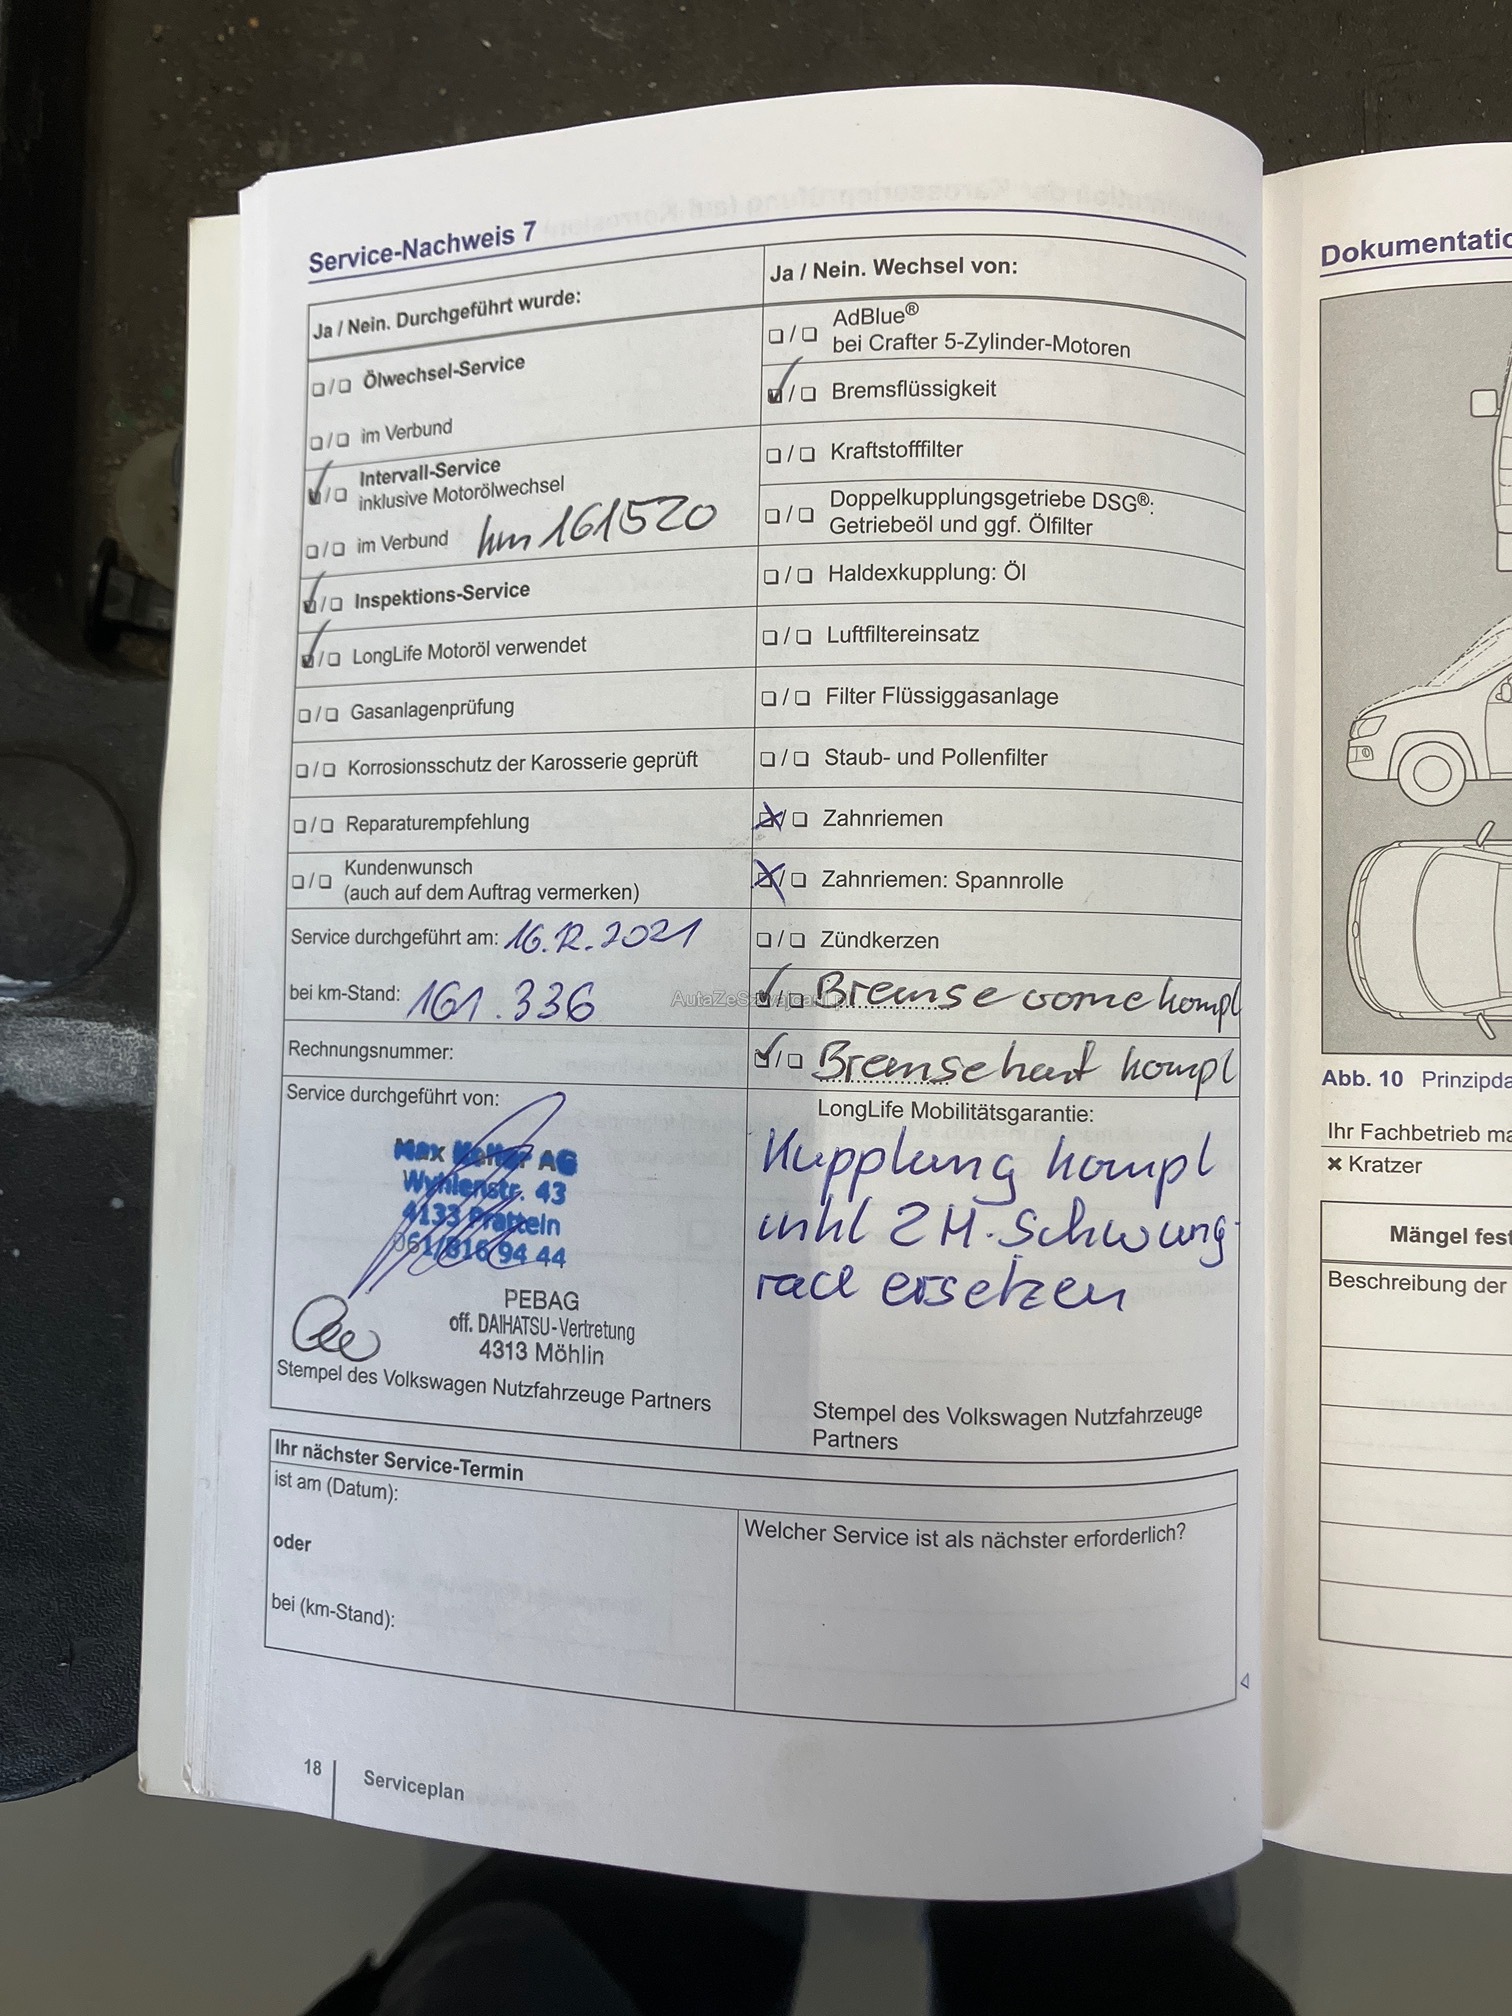 Service-Nachweis 7
Ja / Nein. Durchgeführt wurde:
❏ / ❏ Ölwechsel-Service
❏ / ❏ im Verbund
❏ / ❏ Intervall-Service
inklusive Motorölwechsel
❏ / ❏ im Verbund km 161520
❏ / ❏ Inspektions-Service
❏ / ❏ LongLife Motoröl verwendet
❏ / ❏ Gasanlagenprüfung
❏ / ❏ Korrosionsschutz der Karosserie geprüft
❏ / ❏ Reparaturempfehlung
❏ / ❏ Kundenwunsch
(auch auf dem Auftrag vermerken)
Service durchgeführt am: 16.12.2021
bei km-Stand: 161.336
Rechnungsnummer:
Service durchgeführt von:
Max Keller AG
Wyhlenstr. 43
4133 Pratteln
061/816 94 44
PEBAG
off. DAIHATSU-Vertretung
4313 Möhlin
Stempel des Volkswagen Nutzfahrzeuge Partners
Ja / Nein. Wechsel von:
❏ / ❏ AdBlue®
bei Crafter 5-Zylinder-Motoren
❏ / ❏ Bremsflüssigkeit
❏ / ❏ Kraftstofffilter
❏ / ❏ Doppelkupplungsgetriebe DSG®:
Getriebeöl und ggf. Ölfilter
❏ / ❏ Haldexkupplung: Öl
❏ / ❏ Luftfiltereinsatz
❏ / ❏ Filter Flüssiggasanlage
❏ / ❏ Staub- und Pollenfilter
❏ / ❏ Zahnriemen
❏ / ❏ Zahnriemen: Spannrolle
❏ / ❏ Zündkerzen
❏ / ❏ Bremse vorne kompl
❏ / ❏ Bremse hint kompl
LongLife Mobilitätsgarantie:
Kupplung kompl
inkl 2 M. Schwung-
rad ersetzen
Stempel des Volkswagen Nutzfahrzeuge
Partners
Ihr nächster Service-Termin
ist am (Datum):
oder
bei (km-Stand):
Welcher Service ist als nächster erforderlich?
18
Serviceplan
Dokumentatio
Abb. 10 Prinzipda
Ihr Fachbetrieb ma
✖ Kratzer
Mängel fest
Beschreibung der